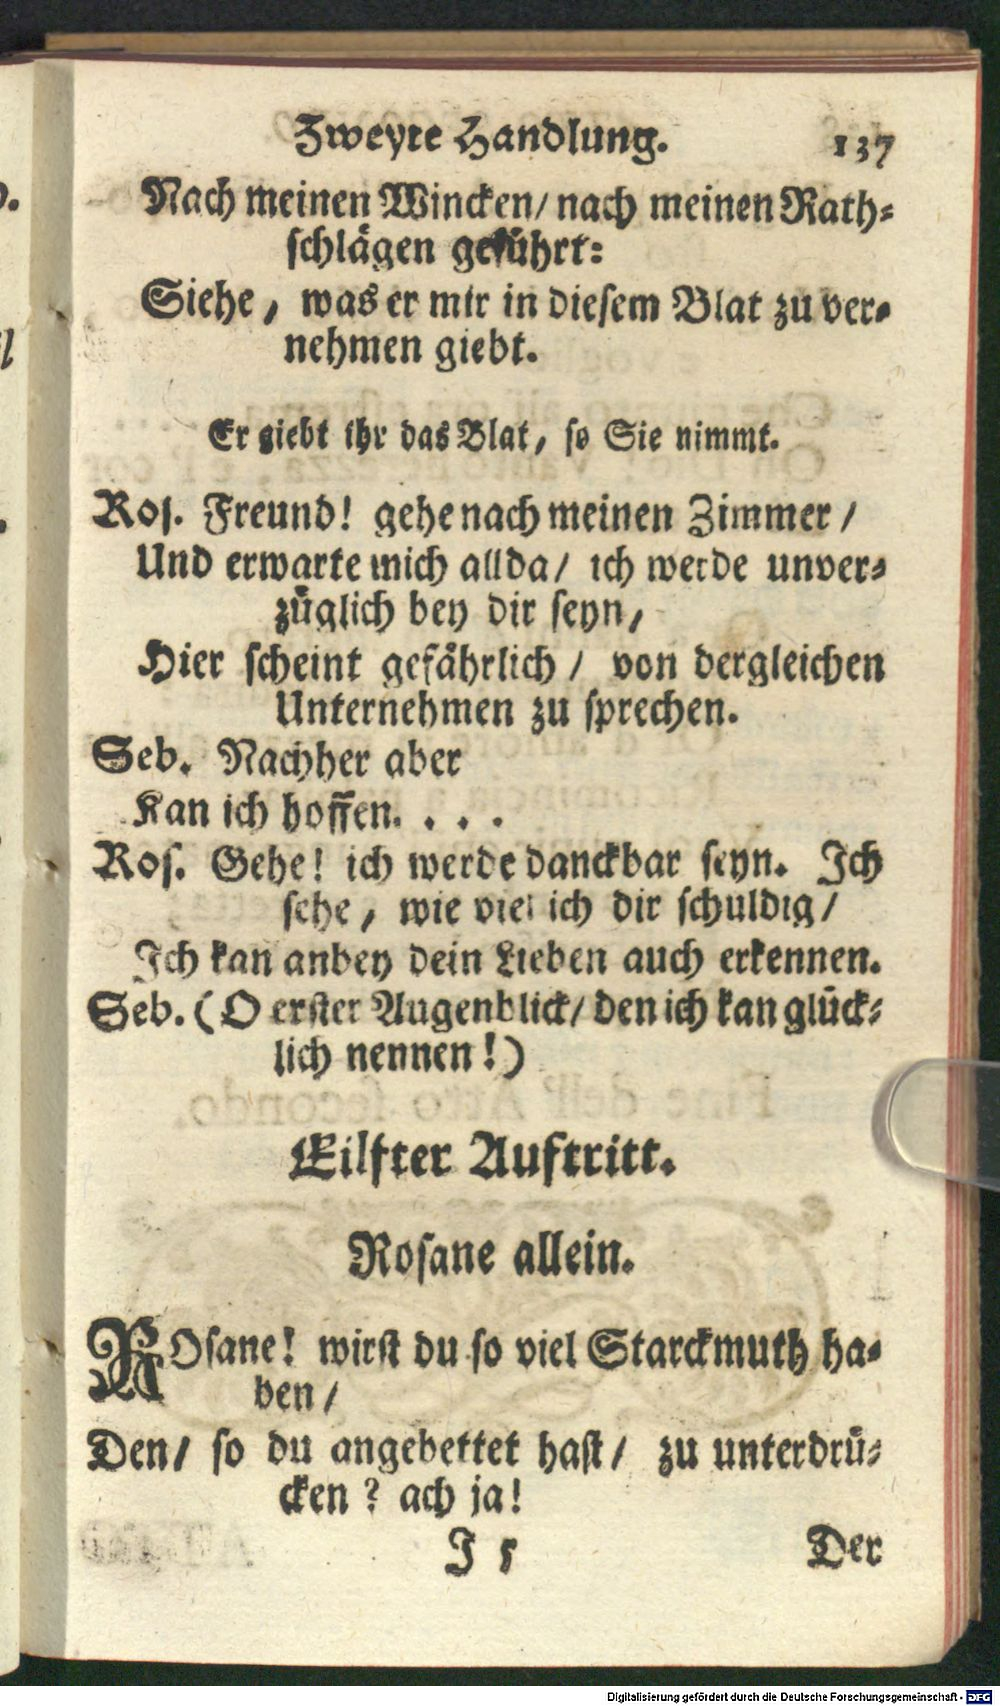 Zweyte Handlung. 137
Nach meinen Wincken/ nach meinen Rath-
schlägen geführt:
Siehe, was er mir in diesem Blat zu ver-
nehmen giebt.
Er giebt ihr das Blat, so Sie nimmt.
Ros. Freund! gehe nach meinen Zimmer /
Und erwarte mich allda/ ich werde unver-
züglich bey dir seyn,
Hier scheint gefährlich / von dergleichen
Unternehmen zu sprechen.
Seb. Nachher aber
Kan ich hoffen. . . .
Ros. Gehe! ich werde danckbar seyn. Ich
sehe, wie viel ich dir schuldig /
Ich kan anbey dein Lieben auch erkennen.
Seb. (O erster Augenblick/ den ich kan glück-
lich nennen!)
Eilfter Auftritt.
Rosane allein.
ROsane! wirst du so viel Starckmuth ha-
ben /
Den/ so du angebettet hast/ zu unterdrü-
cken? ach ja!
I 5 Der
Digitalisierung gefördert durch die Deutsche Forschungsgemeinschaft - DFG